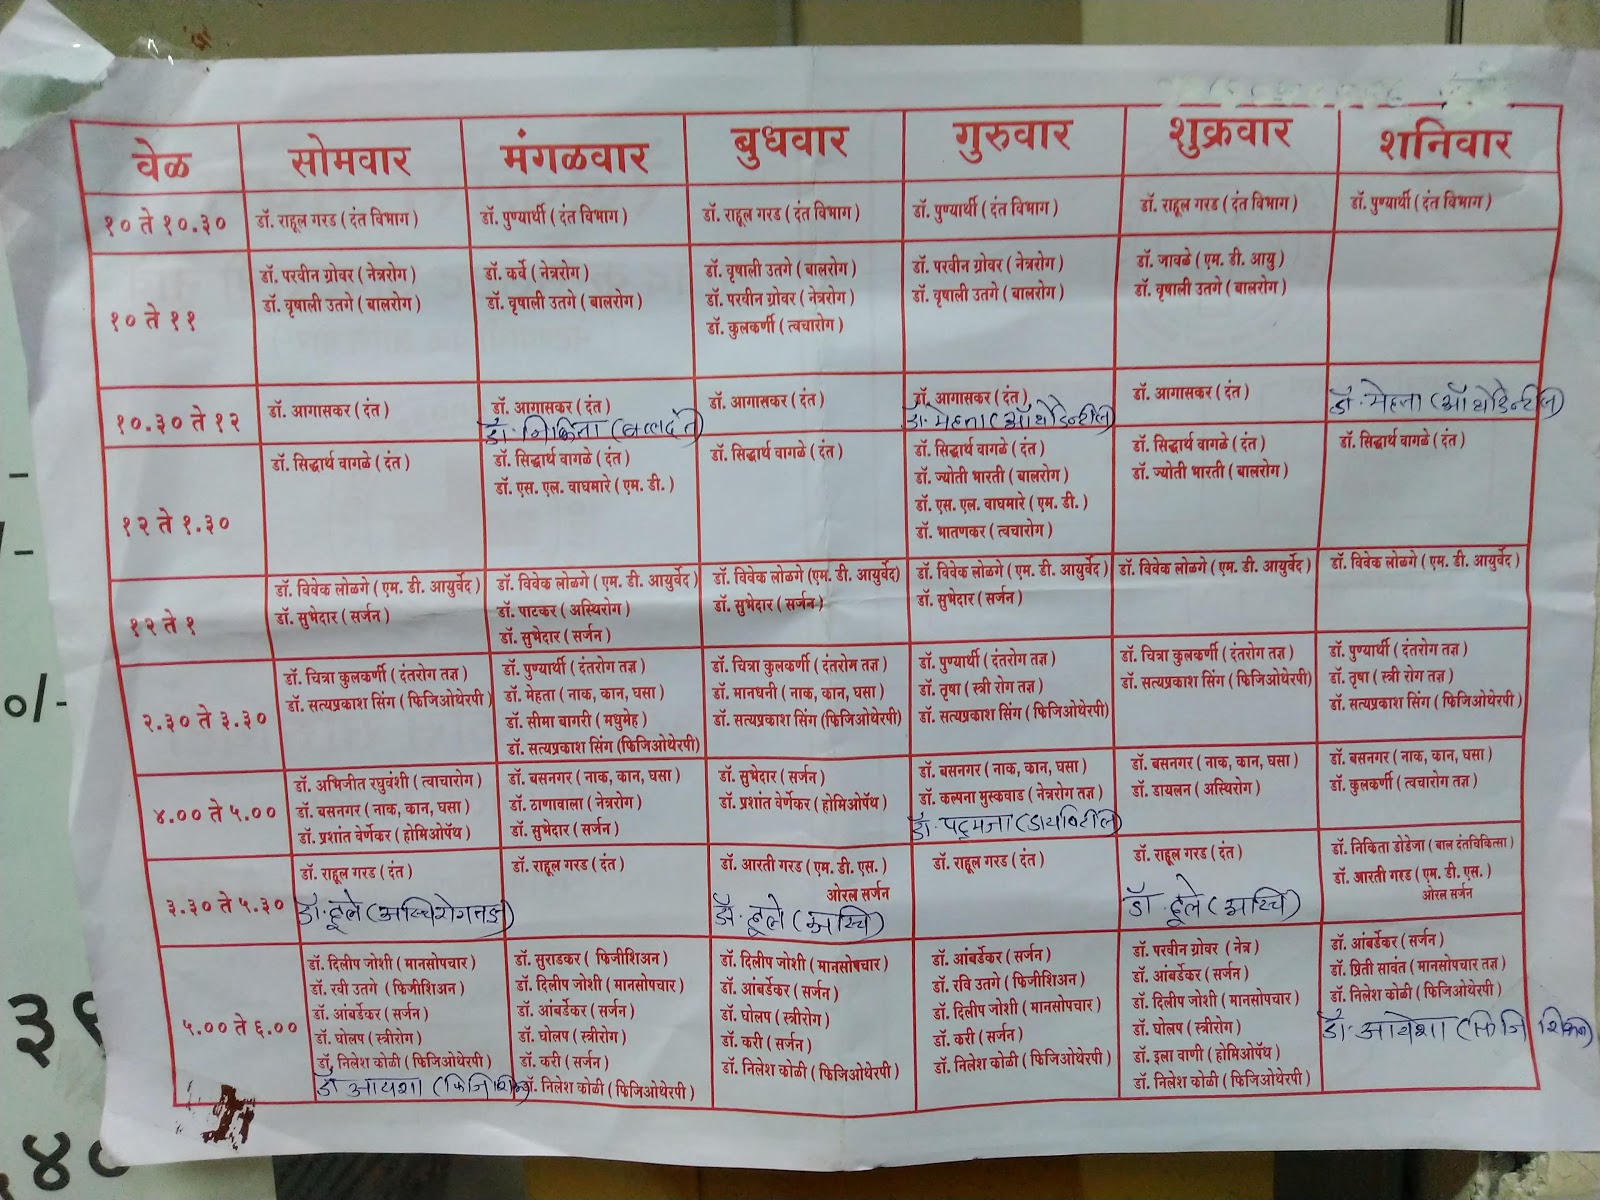 वेळ सोमवार मंगळवार बुधवार गुरुवार शुक्रवार शनिवार
१० ते १०.३०
डॉ. राहूल गरड ( दंत विभाग )
डॉ. पुण्यार्थी ( दंत विभाग )
डॉ. राहूल गरड ( दंत विभाग )
डॉ. पुण्यार्थी ( दंत विभाग )
डॉ. राहूल गरड ( दंत विभाग )
डॉ. पुण्यार्थी ( दंत विभाग )
१० ते ११
डॉ. परवीन ग्रोवर ( नेत्ररोग )
डॉ. वृषाली उतगे ( बालरोग )
डॉ. कर्वे ( नेत्ररोग )
डॉ. वृषाली उतगे ( बालरोग )
डॉ. वृषाली उतगे ( बालरोग )
डॉ. परवीन ग्रोवर ( नेत्ररोग )
डॉ. कुलकर्णी ( त्वचारोग )
डॉ. परवीन ग्रोवर ( नेत्ररोग )
डॉ. वृषाली उतगे ( बालरोग )
डॉ. जावळे ( एम. डी. आयु )
डॉ. वृषाली उतगे ( बालरोग )
१०.३० ते १२
डॉ. आगासकर ( दंत )
डॉ. आगासकर ( दंत )
डॉ. निकिता
डॉ. आगासकर ( दंत )
डॉ. आगासकर ( दंत )
डॉ. मेहता
डॉ. आगासकर ( दंत )
डॉ. मेहता
१२ ते १.३०
डॉ. सिद्धार्थ वागळे ( दंत )
डॉ. सिद्धार्थ वागळे ( दंत )
डॉ. एस. एल. वाघमारे ( एम. डी. )
डॉ. सिद्धार्थ वागळे ( दंत )
डॉ. सिद्धार्थ वागळे ( दंत )
डॉ. ज्योती भारती ( बालरोग )
डॉ. एस. एल. वाघमारे ( एम. डी. )
डॉ. भातणकर ( त्वचारोग )
डॉ. सिद्धार्थ वागळे ( दंत )
डॉ. ज्योती भारती ( बालरोग )
डॉ. सिद्धार्थ वागळे ( दंत )
१२ ते १
डॉ. विवेक लोळगे ( एम. डी. आयुर्वेद )
डॉ. सुभेदार ( सर्जन )
डॉ. विवेक लोळगे ( एम. डी. आयुर्वेद )
डॉ. पाटकर ( अस्थिरोग )
डॉ. सुभेदार ( सर्जन )
डॉ. विवेक लोळगे (एम. डी. आयुर्वेद)
डॉ. सुभेदार ( सर्जन )
डॉ. विवेक लोळगे ( एम. डी. आयुर्वेद )
डॉ. सुभेदार ( सर्जन )
डॉ. विवेक लोळगे ( एम. डी. आयुर्वेद )
डॉ. विवेक लोळगे ( एम. डी. आयुर्वेद )
२.३० ते ३.३०
डॉ. चित्रा कुलकर्णी ( दंतरोग तज्ञ )
डॉ. सत्यप्रकाश सिंग ( फिजिओथेरपी )
डॉ. पुण्यार्थी ( दंतरोग तज्ञ )
डॉ. मेहता ( नाक, कान, घसा )
डॉ. सीमा बागरी ( मधुमेह )
डॉ. सत्यप्रकाश सिंग (फिजिओथेरपी)
डॉ. चित्रा कुलकर्णी ( दंतरोग तज्ञ )
डॉ. मानघनी ( नाक, कान, घसा )
डॉ. सत्यप्रकाश सिंग (फिजिओथेरपी)
डॉ. पुण्यार्थी ( दंतरोग तज्ञ )
डॉ. तृषा ( स्त्री रोग तज्ञ )
डॉ. सत्यप्रकाश सिंग ( फिजिओथेरपी)
डॉ. चित्रा कुलकर्णी ( दंतरोग तज्ञ )
डॉ. सत्यप्रकाश सिंग (फिजिओथेरपी)
डॉ. पुण्यार्थी ( दंतरोग तज्ञ )
डॉ. तृषा ( स्त्री रोग तज्ञ )
डॉ. सत्यप्रकाश सिंग ( फिजिओथेरपी )
४.०० ते ५.००
डॉ. अभिजीत रघुवंशी ( त्वाचारोग )
डॉ. बसनगर ( नाक, कान, घसा )
डॉ. प्रशांत वेर्णेकर ( होमिओपॅथ )
डॉ. बसनगर ( नाक, कान, घसा )
डॉ. ठाणावाला ( नेत्ररोग )
डॉ. सुभेदार ( सर्जन )
डॉ. सुभेदार ( सर्जन )
डॉ. प्रशांत वेर्णेकर ( होमिओपॅथ )
डॉ. बसनगर ( नाक, कान, घसा )
डॉ. कल्पना मुस्कवाड ( नेत्ररोग तज्ञ )
डॉ. पद्मजा
डॉ. बसनगर ( नाक, कान, घसा )
डॉ. डायलन ( अस्थिरोग )
डॉ. बसनगर ( नाक, कान, घसा )
डॉ. कुलकर्णी ( त्वचारोग तज्ञ )
३.३० ते ५.३०
डॉ. राहूल गरड ( दंत )
डॉ. हूले
डॉ. राहूल गरड ( दंत )
डॉ. आरती गरड ( एम. डी. एस. )
ओरल सर्जन
डॉ. हूले
डॉ. राहूल गरड ( दंत )
डॉ. राहूल गरड ( दंत )
डॉ. हूले
डॉ. निकिता डोडेजा ( बाल दंतचिकित्सा )
डॉ. आरती गरड ( एम. डी. एस. )
ओरल सर्जन
५.०० ते ६.००
डॉ. दिलीप जोशी ( मानसोपचार )
डॉ. रवी उतगे ( फिजीशिअन )
डॉ. आंबर्डेकर ( सर्जन )
डॉ. घोलप ( स्त्रीरोग )
डॉ. निलेश कोळी ( फिजिओथेरपी )
डॉ. आयशा
डॉ. सुराडकर ( फिजीशिअन )
डॉ. दिलीप जोशी ( मानसोपचार )
डॉ. आंबर्डेकर ( सर्जन )
डॉ. घोलप ( स्त्रीरोग )
डॉ. करी ( सर्जन )
डॉ. निलेश कोळी ( फिजिओथेरपी )
डॉ. दिलीप जोशी ( मानसोपचार )
डॉ. आंबर्डेकर ( सर्जन )
डॉ. घोलप ( स्त्रीरोग )
डॉ. करी ( सर्जन )
डॉ. निलेश कोळी ( फिजिओथेरपी )
डॉ. आंबर्डेकर ( सर्जन )
डॉ. रवि उतगे ( फिजीशिअन )
डॉ. दिलीप जोशी ( मानसोपचार )
डॉ. करी ( सर्जन )
डॉ. निलेश कोळी ( फिजिओथेरपी )
डॉ. परवीन ग्रोवर ( नेत्र )
डॉ. आंबर्डेकर ( सर्जन )
डॉ. दिलीप जोशी ( मानसोपचार )
डॉ. घोलप ( स्त्रीरोग )
डॉ. इला वाणी ( होमिओपॅथ )
डॉ. निलेश कोळी ( फिजिओथेरपी )
डॉ. आंबर्डेकर ( सर्जन )
डॉ. प्रिती सावंत ( मानसोपचार तज्ञ )
डॉ. निलेश कोळी ( फिजिओथेरपी )
डॉ. आयेशा